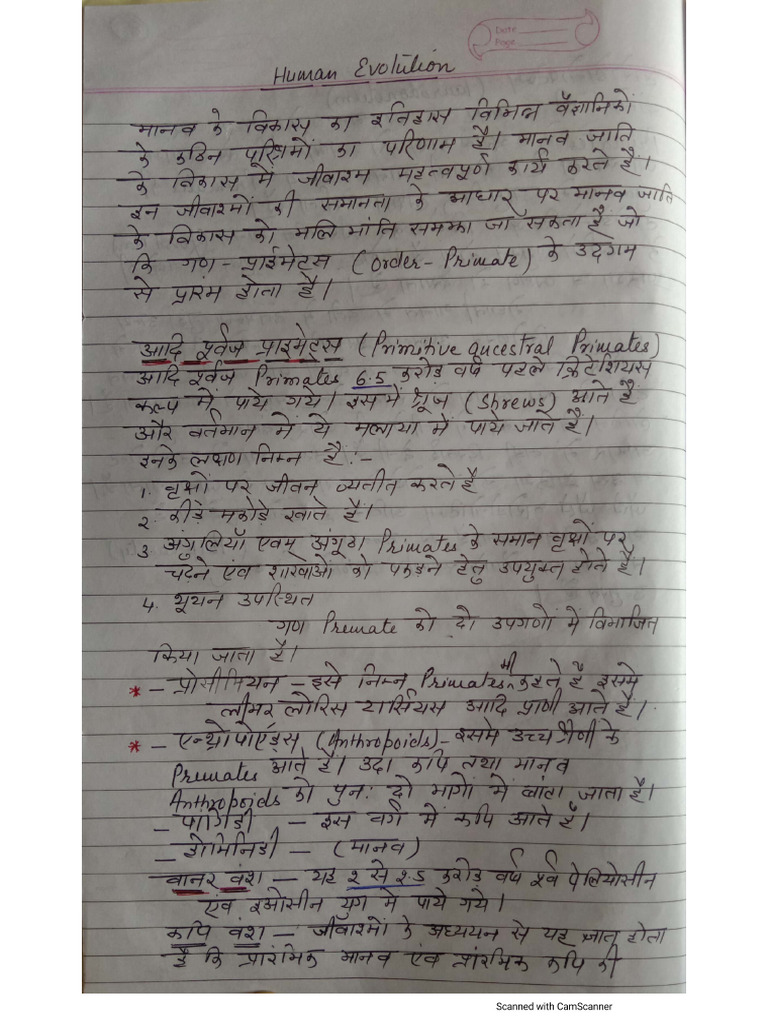 Date
Page
Human Evolution
मानव के विकास का इतिहास विभिन्न वैज्ञानिकों
के कठिन परिश्रमों का परिणाम है। मानव जाति
के विकास में जीवाश्म महत्वपूर्ण कार्य करते है।
इन जीवाश्मों की समानता के आधार पर मानव जाति
के विकास को भलि भांति समझा जा सकता है जो
कि गण - प्राईमेट्स (order - Primate) के उदगम
से प्रारंभ होता है।
आदि पूर्वज प्राइमेट्स (Primitive ancestral Primates)
आदि पूर्वज Primates 6.5 करोड़ वर्ष पहले क्रिटेशियस
कल्प में पाये गये। इसमें श्रूज (Shrews) आते है
और वर्तमान में ये मलाया में पाये जाते है।
इनके लक्षण निम्न है :-
1. वृक्षों पर जीवन व्यतीत करते है
2. कीड़े मकोड़े खाते है।
3. अंगुलियाँ एवम् अंगूठा Primates के समान वृक्षों पर
चढ़ने एंव शाखाओं को पकड़ने हेतु उपयुक्त होते है।
4. थूथन उपस्थित
गण Premate को दो उपगणों में विभाजित
किया जाता है।
* - प्रोसीमियन - इसे निम्न Primates भी कहते है इसमे
लीमर लोरिस टार्सियस आदि प्राणी आते है।
* - एन्थ्रोपोएड्स (Anthropoids) - इसमे उच्च श्रेणी के
Premates आते है। उदा कपि तथा मानव
Anthropoids को पुनः दो भागो में बांटा जाता है।
- पोंगिडी - इस वर्ग में कपि आते है।
- होमिनिडी - (मानव)
वानर वंश - यह 2 से 2.5 करोड़ वर्ष पूर्व पेलियोसीन
एवं इओसीन युग मे पाये गये।
कपि वंश - जीवाश्मों के अध्ययन से यह ज्ञात होता
है कि प्रारंभिक मानव एंव प्रांरभिक कपि की
Scanned with CamScanner